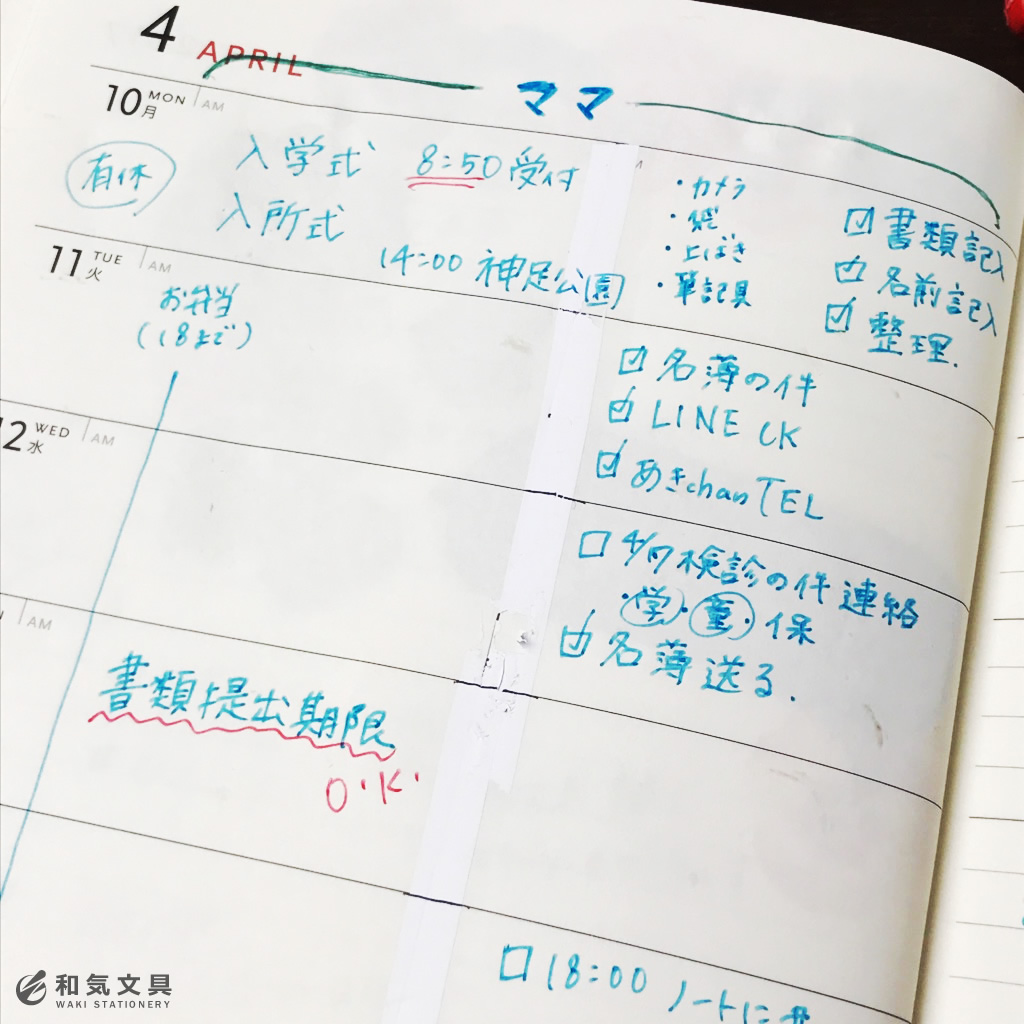 4 APRIL
ママ
10 MON 月 AM
有休
入学式 8:50 受付
入所式
14:00 神足公園
・カメラ
・上ばき
・筆記具
☑ 書類記入
☑ 名前記入
☑ 整理.
11 TUE 火 AM
お弁当
(18まで)
☑ 名薄の件
☑ LINE CK
☑ あきchan TEL
12 WED 水 AM
□ 4/17 検診の件 連絡
・学・童・保
☑ 名薄送る.
AM
書類提出期限
O.K.
□ 18:00 ノートに
和気文具
WAKI STATIONERY